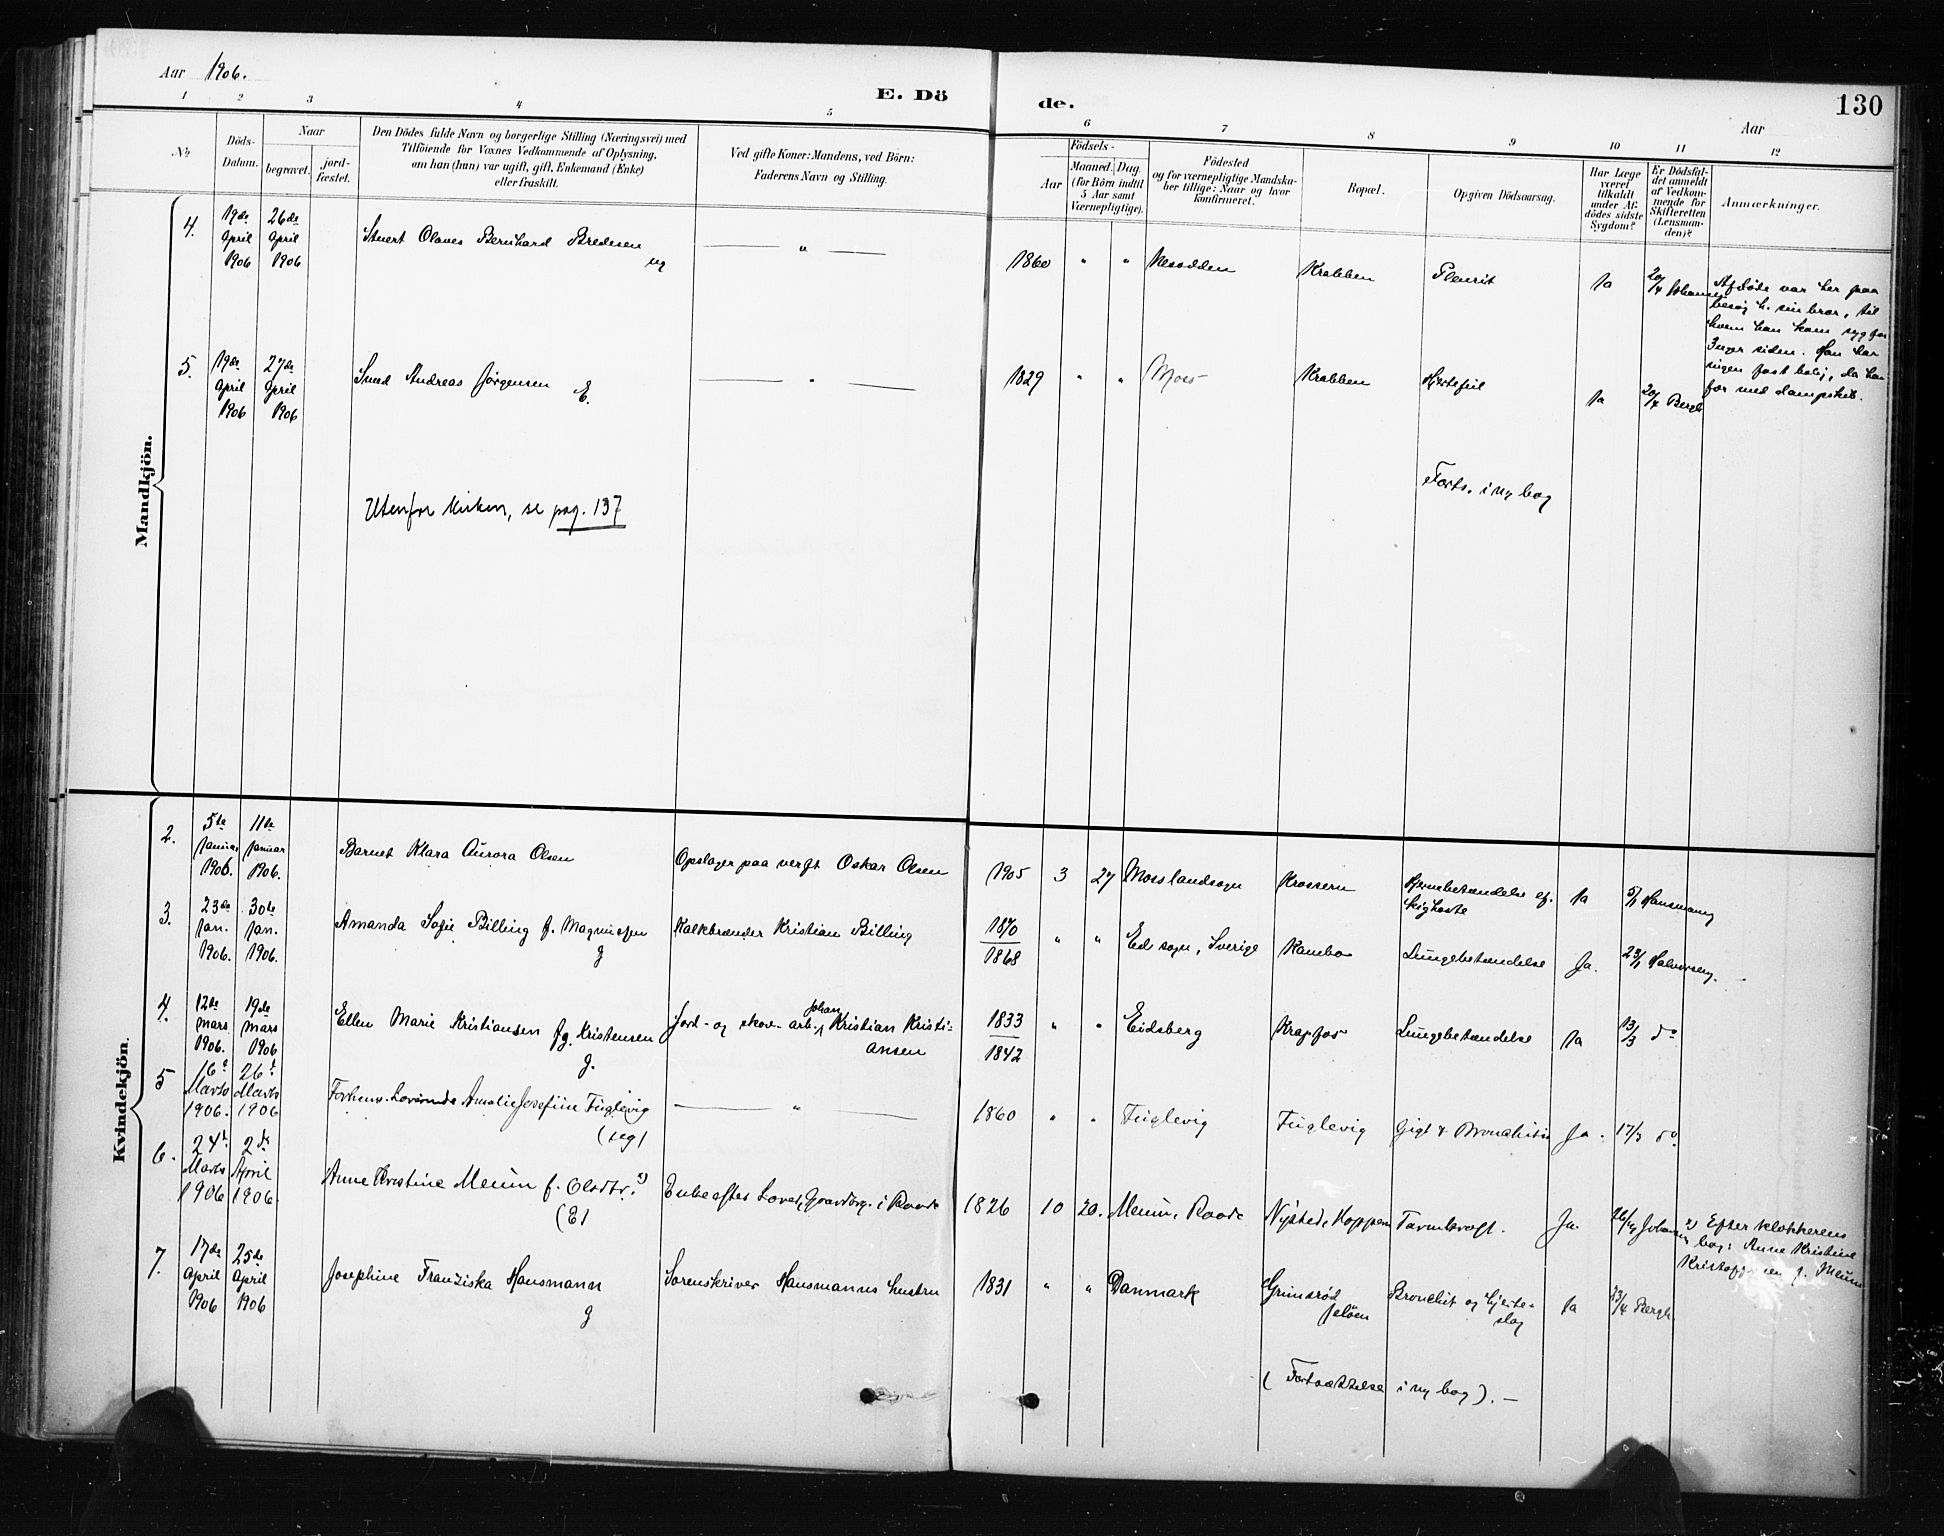 Aar 1906.
E. Døde.
Aar
130
1 2 3 4 5 6 7 8 9 10 11 12
No
Döds-Datum.
Naar
begravet.
jord-fæstet.
Den Dödes fulde Navn og borgerlige Stilling (Næringsvei) med
Tilföiende for Voxnes Vedkommende af Oplysning,
om han (hun) var ugift, gift, Enkemand (Enke)
eller fraskilt.
Ved gifte Koner: Mandens, ved Börn:
Faderens Navn og Stilling.
Födsels-
Aar
Maaned. Dag.
(for Börn indtil
5 Aar samt
Værnepligtige).
Födested
og for værnepligtige Mandska-
ber tillige: Naar og hvor
konfirmeret.
Bopæl.
Opgiven Dödsaarsag.
Har Læge
været
tilkaldt
under Af-
dödes sidste
Sygdom?
Er Dödsfal-
det anmeldt
af Vedkom-
mende for
Skifteretten
(Lensman-
den)?
Anmærkninger.
Mandkjön.
4. 19de April 1906 26de April 1906 Stuert Olaves Bernhard Bredesen ug — " — 1860 " " Nesodden Krabben Pleurit Ja 20/4
Afdøde var her paa
besøg h. sin bror, til
hvem han kom syg for
3 uger siden. Han har
ingen fast bolig, da han
for med dampskib.
5. 19de April 1906 27de April 1906 Smed Andreas Jörgensen E. — " — 1829 " " Moss Krabben Hjertefeil Ja 20/4 Bergh
Forts. i ny bog
Utenfor kirken, se pag. 137
Kvindekjön.
2. 5te Januar 1906. 11te Januar 1906. Barnet Klara Aurora Olsen Opslager paa verft Oskar Olsen 1905 3 27 Moss landsogn Krossern Hjernebetændelse ef. kighoste Ja 5/1 Hansmann
3. 23de Jan. 1906. 30te Jan. 1906. Amanda Sofie Billing f. Magnussen g Kalkbrænder Kristian Billing 1870 1868 " " Ed sogn, Sverige Kambo Lungebetændelse Ja. 23/1 Halvorsen.
4. 12te Mars 1906. 19de Mars 1906 Ellen Marie Kristiansen fg. Kristensen g. Jord- og skov-arb. Johan Kristian Kristiansen 1833 1842 " " Eidsberg Krapfos Lungebetændelse Ja 13/3 do
5 16e Marts 1906. 26t Marts 1906 Forhenv. Lærerinde Amalie Josefine Fuglevig (ug) — " — 1860 " " Fuglevig Fuglevig Gigt & Bronchitis Ja. 17/3 do
6. 24t Marts 1906 2de April 1906. Anne Kristine Meum f. Olsdtr. x) (E) Enke efter Lovet, Gaardbrg. i Raade 1826 10 20. Meum, Raade Nysted, Koppern Tarmkræft. Ja.
x) Efter klokkerens
bog: Anne Kristine
Kristoffersen f. Meum
7. 17de April 1906 25de April 1906 Josephine Franziska Hansmann g Sorenskriver Hansmanns hustru 1831 " " Danmark Grimsrød Jeløen Bronchit og hjerteslag Ja 23/4 Bergh.
(Fortsættelse i ny bog). —